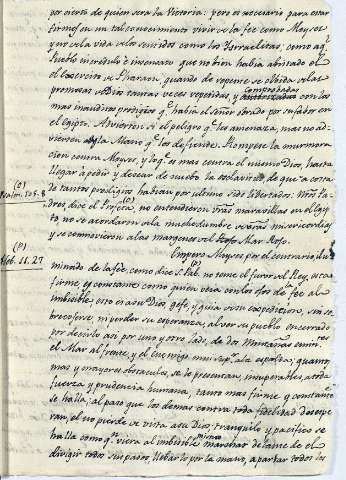 por cierto de quien sera la Victoria: pero es necesario para estar
firmes en un tal conocimiento vivir de la fee como Moyses,
y no de la vida de los sentidos como los Israelitas, como aql.
Pueblo incredulo è insensato que no bien havia abistado el
el Exercito de Pharaon, quando de repente se olvida de las
promesas de Dios tantas veces repetidas, y comprobadas con los
mas inauditos prodigios qe. havia el Señor obrado por su favor en
el Egipto. Advierten si el peligro qe. les amenaza, mas no ad-
vierten la Mano qe. los defiende. Rompese la murmura-
cion contra Moyses, y lo qe. es mas contra el mismo Dios, hasta
llegar a pedir y desear de nuebo la esclavitud, de que a costa
de tantos prodigios habian por ultimo sido libertados. Ntros. Pa-
(o)
Psalm. 105. 8.
dres, dice el Profeta (o) no entendieron tus maravillas en el Egip-
to no se acordaron de la muchedumbre de tus misericordias
y se commovieron a las margenes del Mar Roxo.
(p)
Heb. 11. 27
Empero Moyses por el contrario ilu-
minado de la fee, como dice S. Pab. no teme el furor del Rey, esta
firme, y constante como quien veia con los ojos de la fee al
imbisible; esto es a su Dios, gefe, y guia de su expedicion, sin so-
brecogerse ni perder su esperanza, al ver su pueblo encerrado
por decirlo asi por uno y otro lado, de dos Montañas,
el Mar al frente, y el enemigo a la espalda, quanto
mas y mayores obstaculos, se le presentan, insuperables a toda
fuerza y prudencia humana, tanto mas firme y constante
se halla; al paso que los demas contra toda fidelidad desespe-
ran, el no pierde de vista a su Dios, tranquilo y pacifico se
halla como qn. viera al imbisible mismo marchar delante de el
dirigir todos sus pasos, llebarlo por la mano, apartar todos los